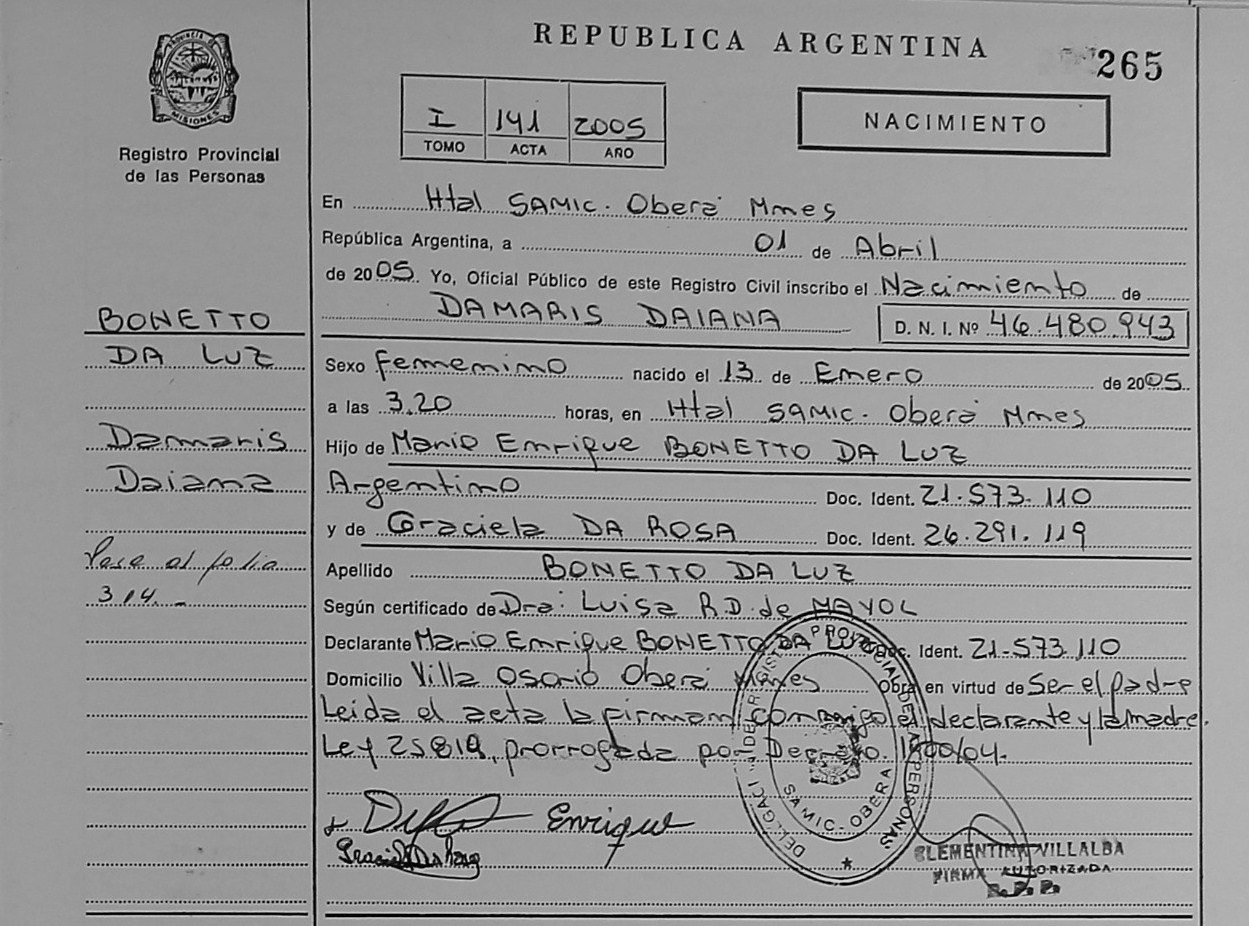 REPUBLICA ARGENTINA
265
PROVINCIA DE
MISIONES
Registro Provincial
de las Personas
I 141 2005
TOMO ACTA AÑO
NACIMIENTO
En Htal SAMIC. Oberá Mnes
República Argentina, a 01 de Abril
de 2005 Yo, Oficial Público de este Registro Civil inscribo el Nacimiento de
DAMARIS DAIANA D. N. I. Nº 46.480.943
BONETTO
DA LUZ
Damaris
Daiana
Pase al folio
314._
Sexo femenino nacido el 13 de Enero de 2005
a las 3.20 horas, en Htal SAMIC. Oberá Mnes
Hijo de Mario Enrique BONETTO DA LUZ
Argentino Doc. Ident. 21.573.110
y de Graciela DA ROSA Doc. Ident. 26.291.119
Apellido BONETTO DA LUZ
Según certificado de Dra: Luisa R.D. de MAYOL
Declarante Mario Enrique BONETTO DA LUZ Doc. Ident. 21.573.110
Domicilio Villa Osorio Oberá Mnes Obra en virtud de Ser el padre
Leida el acta la firman conmigo el declarante y la madre.
Ley 25819, prorrogada por Decreto. 1800/04.
Enrique
DELEGACION DE REGISTRO PROVINCIAL DE LAS PERSONAS
SAMIC - OBERA
CLEMENTINA VILLALBA
FIRMA AUTORIZADA
R.P.P.